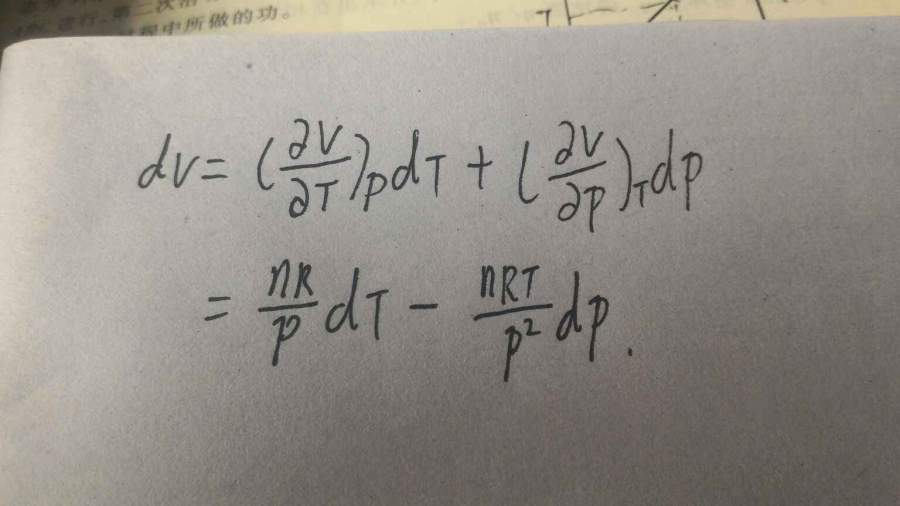 过程中所做的功。
dV = (∂V/∂T)_P dT + (∂V/∂P)_T dp
= nR/P dT − nRT/P² dp.